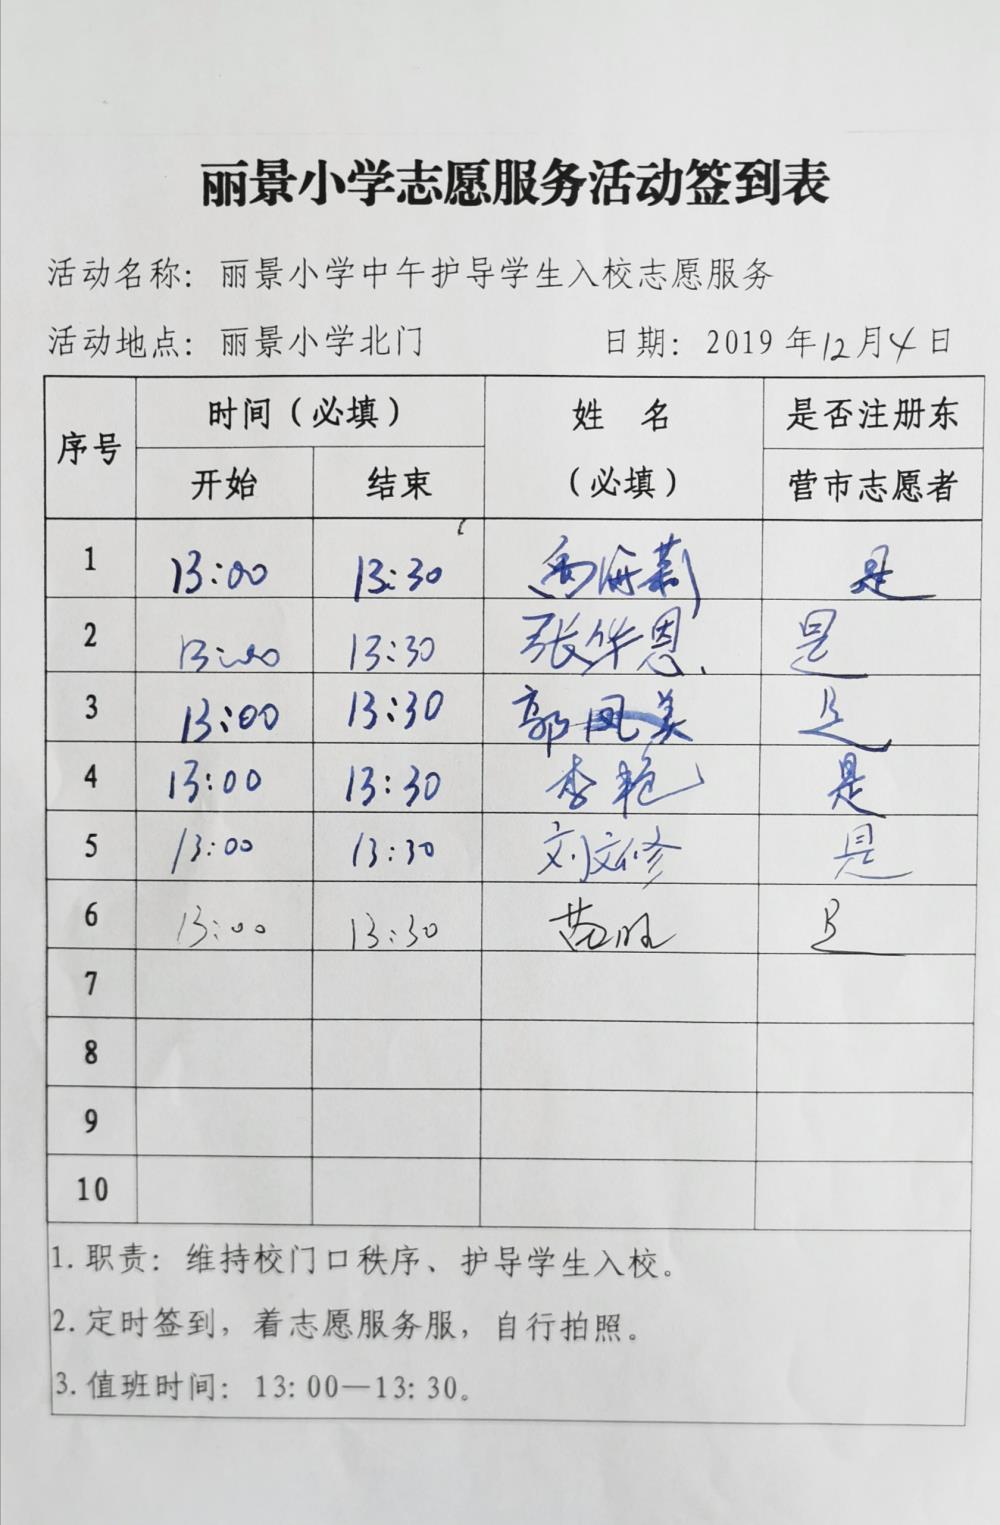 丽景小学志愿服务活动签到表
活动名称：丽景小学中午护导学生入校志愿服务
活动地点：丽景小学北门 日期：2019年12月4日
序号 时间（必填） 姓 名 是否注册东
开始 结束 （必填） 营市志愿者
1 13:00 13:30 是
2 13:00 13:30 张华恩 是
3 13:00 13:30 郭凤美 是
4 13:00 13:30 李艳 是
5 13:00 13:30 刘文修 是
6 13:00 13:30 苗旺 是
7
8
9
10
1.职责：维持校门口秩序、护导学生入校。
2.定时签到，着志愿服务服，自行拍照。
3.值班时间：13:00—13:30。